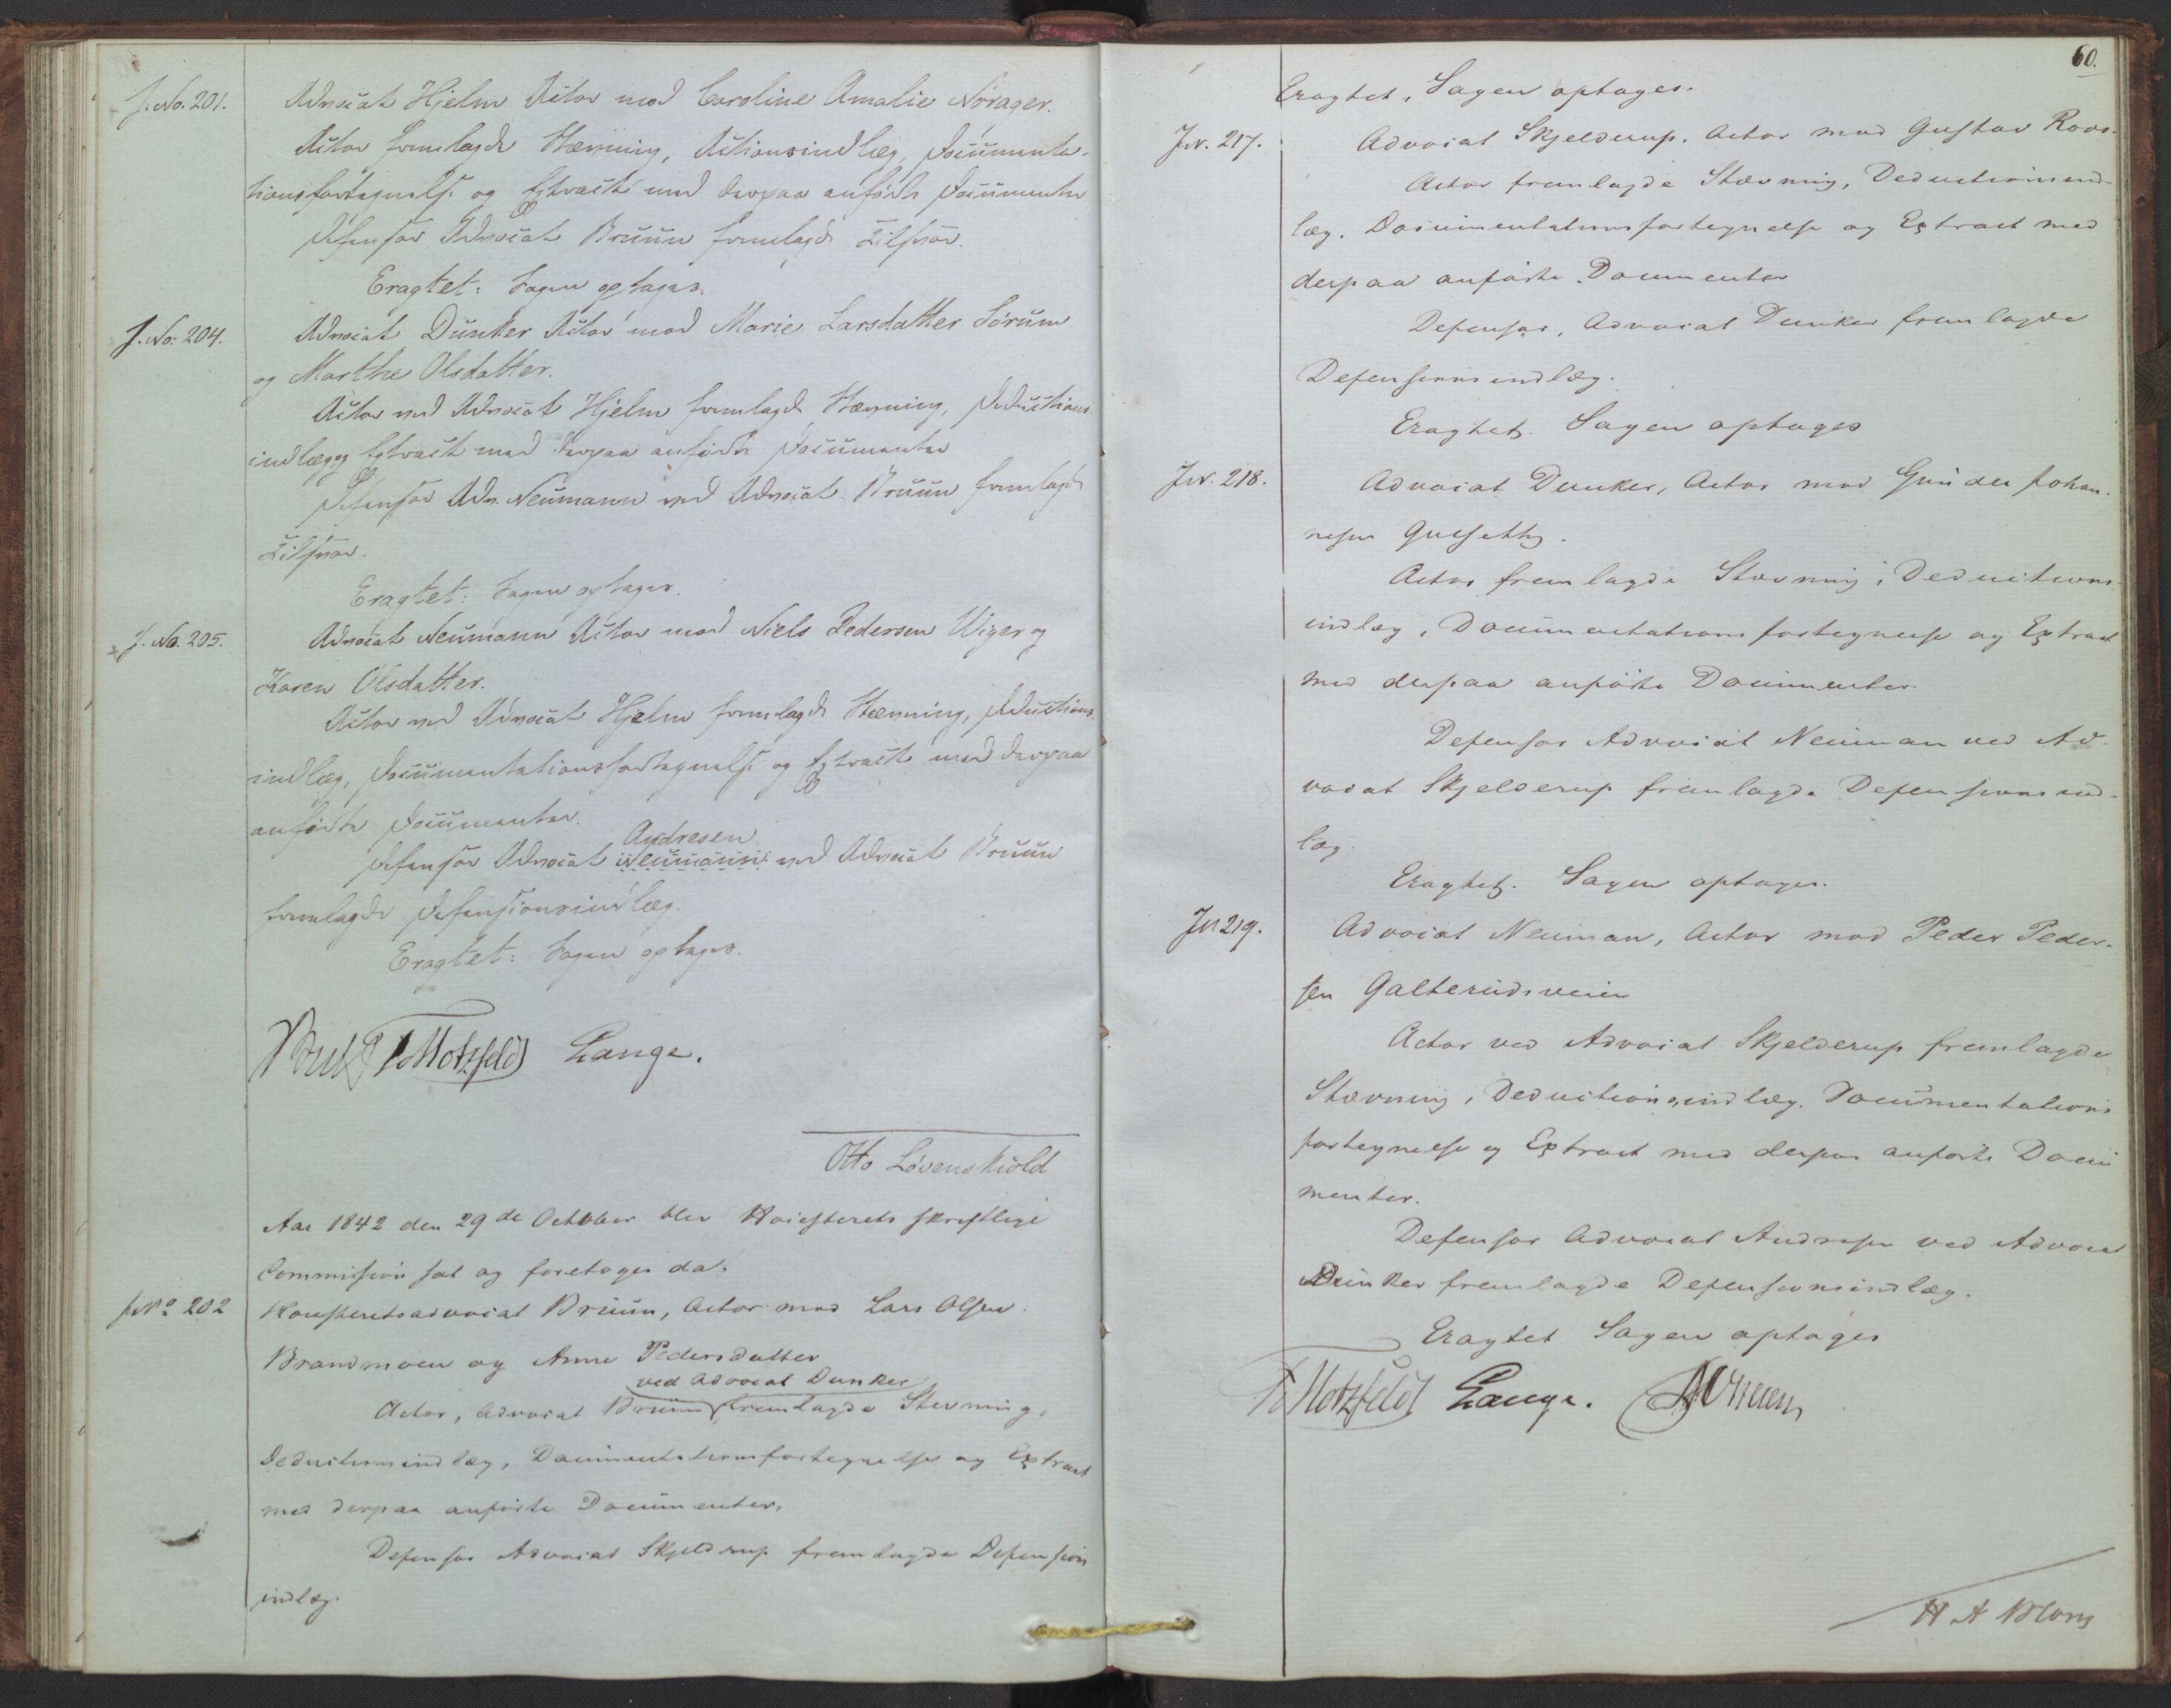 J. No. 201. Advocat Hjelm Actor mod Caroline Amalie Nórager.
Actor fremlagde Stævning, Actionsindlæg, Documenta-
tionsfortegnelse og Extract med derpaa anförte Documenter
Defensor Advocat Bruun fremlagde Tilsvar.
Eragtet: Sagen optages.
J. No. 204. Advocat Dunker Actor mod Marie Larsdatter Sórum
og Marthe Olsdatter.
Actor ved Advocat Hjelm fremlagde Stævning, Deductions
indlæg og Extract med derpaa anförte Documenter
Defensor Adv. Neumann ved Advocat Bruun fremlagde
Tilsvar.
Eragtet: Sagen optages.
J. No. 205. Advocat Neumann Actor mod Niels Pedersen Wiger og
Karen Olsdatter.
Actor ved Advocat Hjelm fremlagde Stævning, Deductions
indlæg, Documentationsfortegnelse og Extract med derpaa
anförte Documenter.
Andresen
Defensor Advocat Neumann ved Advocat Bruun
fremlagde Defensionsindlæg.
Eragtet: Sagen optages.
Motzfeldt Lange.
Otto Lövenskiold
Aar 1842 den 29de October blev Höiesterets skriftlige
Commission sat og foretoges da:
No 202 Höiesteretsadvocat Bruun, Actor mod Lars Olsen
Brandmoen og Anne Pedersdatter
ved Advocat Dunker
Actor, Advocat Bruun fremlagde Stevning,
Deductionsindlæg, Documentationsfortegnelse og Extract
med derpaa anförte Documenter.
Defensor Advocat Skjelderup fremlagde Defensions
indlæg.
60.
Eragtet, Sagen optages.
JN. 217. Advocat Skjelderup, Actor mod Gustav Roos.
Actor fremlagde Stævning, Deductionsind-
læg, Documentationsfortegnelse og Extract med
derpaa anförte Documenter
Defensor, Advocat Dunker fremlagde
Defensionsindlæg.
Eragtet. Sagen optages
JN. 218. Advocat Dunker, Actor mod Gunder Johan-
nesen Gulsett.
Actor fremlagde Stævning, Deductions-
indlæg, Documentationsfortegnelse og Extract
med derpaa anförte Documenter.
Defensor Advocat Neuman ved Ad-
vocat Skjelderup fremlagde Defensionsind-
læg.
Eragtet. Sagen optages.
JN 219. Advocat Neuman, Actor mod Peder Peder-
sen Galterudsveien
Actor ved Advocat Skjelderup fremlagde
Stævning, Deductionsindlæg, Documentations
fortegnelse og Extract med derpaa anförte Docu
menter.
Defensor Advocat Andresen ved Advocat
Dunker fremlagde Defensionsindlæg.
Eragtet Sagen optages
Motzfeldt Lange.